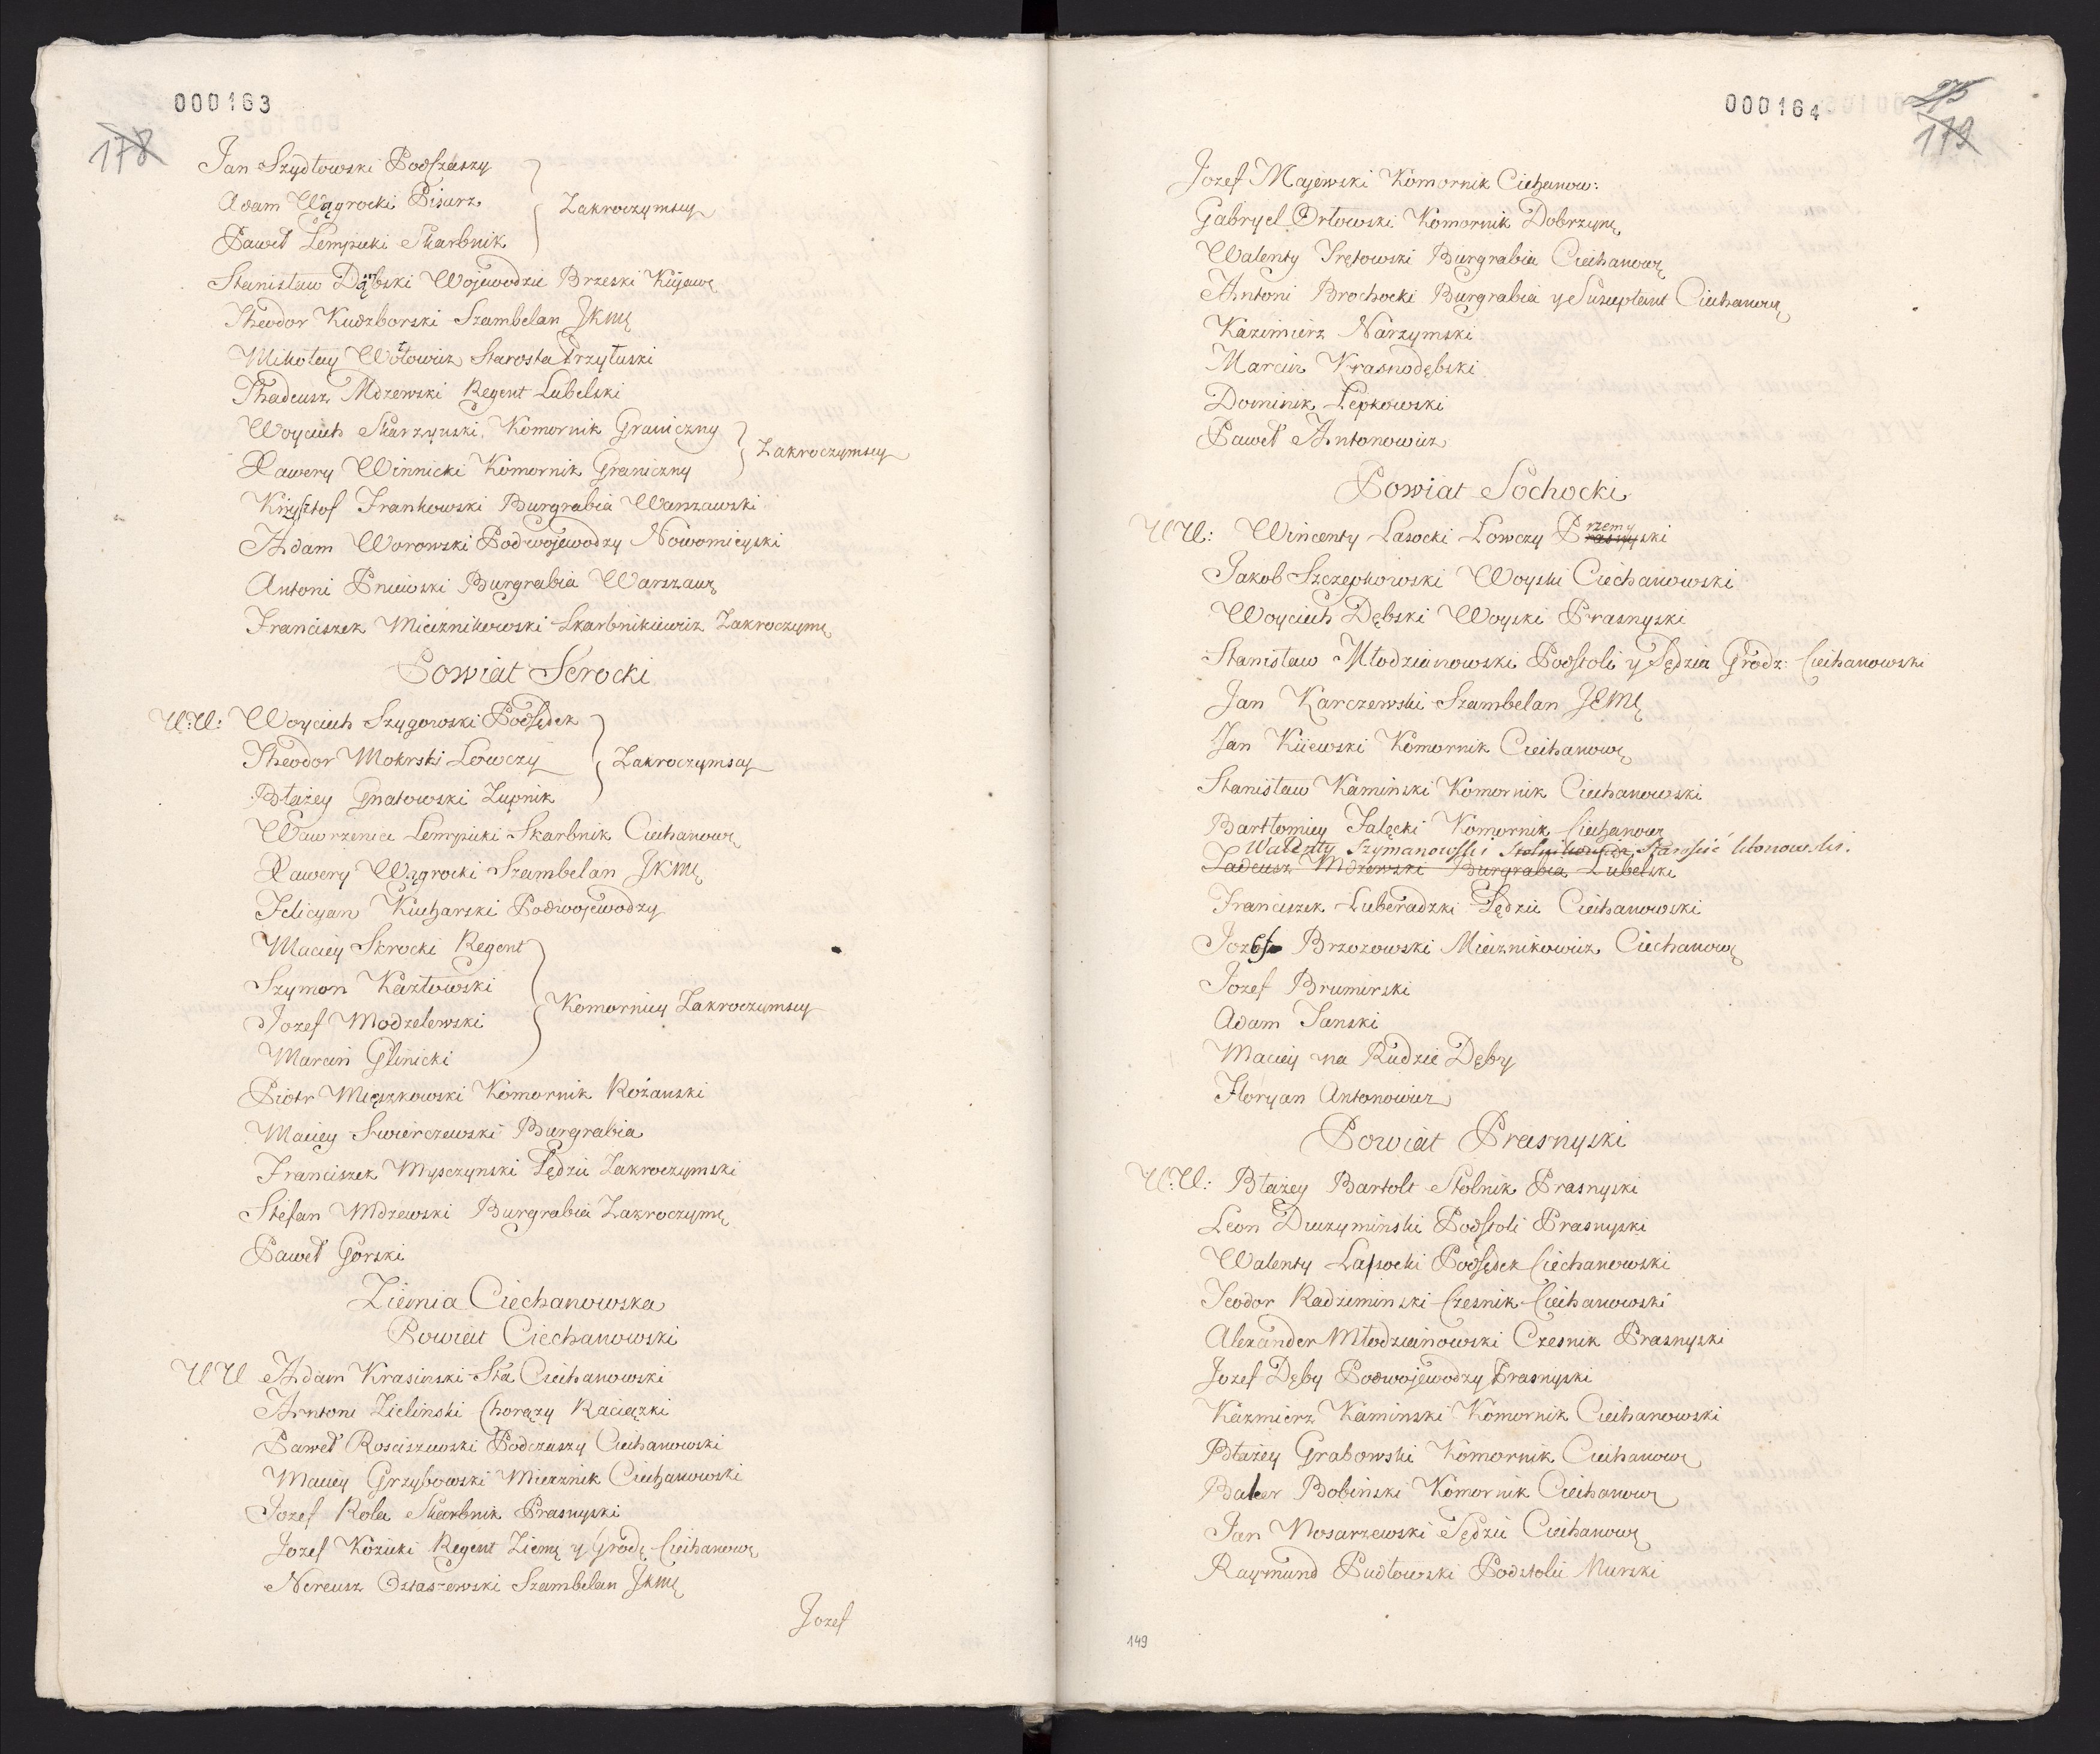 000163
178
Jan Szydłowski Podczaszy
Adam Wągrocki Pisarz } Zakroczymscy
Paweł Lempicki Skarbnik
Stanisław Dąbski Wojewodzic Brzeski Kujawę
Theodor Kudzborski Szambelan JKMę
Mikołay Wołowicz Starosta Przytuski
Thadeusz Mdzewski Regent Lubelski
Woyciech Skarzynski Komornik Graniczny } Zakroczymscy
Xawery Winnicki Komornik Graniczny
Krzysztof Frankowski Burgrabia Warszawski
Adam Worowski Podwojewodzy Nowomieyski
Antoni Pniewski Burgrabia Warszawę
Franciszek Miecznikowski Skarbnikiewicz Zakroczymę
Powiat Serocki
U:U: Woyciech Szygowski Podsędek
Theodor Mokrski Łowczy } Zakroczymscy
Błażey Gnatowski Zupnik
Wawrzeniec Lempicki Skarbnik Ciechanowę
Xawery Wągrocki Szambelan JKMę
Felicyan Kucharski Podwojewodzy
Maciey Serocki Regent
Szymon Kazłowski } Komornicy Zakroczymscy
Jozef Modzelewski
Marcin Glinicki
Piotr Mięszkowski Komornik Rożanski
Maciey Swierczewski Burgrabia
Franciszek Mysczynski Sędzic Zakroczymski
Stefan Mdzewski Burgrabia Zakroczymę
Paweł Gorski
Ziemia Ciechanowska
Powiat Ciechanowski
UU Adam Krasinski Sta Ciechanowski
Antoni Zielinski Chorąży Raciązki
Paweł Rosciszewski Podczaszy Ciechanowski
Maciey Grzybowski Miecznik Ciechanowski
Jozef Rola Skarbnik Prasnyski
Jozef Kozicki Regent Ziemę y Grodę Ciechanowę
Nereusz Ostaszewski Szambelan JKMę
Jozef
000164
275
179
Jozef Majewski Komornik Ciechanow:
Gabryel Orłowski Komornik Dobrzynę
Walenty Frętowski Burgrabia Ciechanowę
Antoni Brochocki Burgrabia y Susceptant Ciechanowę
Kazimierz Narzymski
Marcin Krasnodębski
Dominik Lepkowski
Paweł Antonowicz
Powiat Sochocki
UU: Wincenty Lasocki Łowczy Przemyski
Jakob Szczepkowski Woyski Ciechanowski
Woyciech Dębski Woyski Prasnyski
Stanisław Młodzianowski Podstoli y Sędzia Grodz: Ciechanowski
Jan Karczewski Szambelan JKMę
Jan Kiiewski Komornik Ciechanowę
Stanisław Kaminski Komornik Ciechanowski
Bartłomiey Jalęcki Komornik Ciechanowę
Walenty Szymanowski Stolnikowicz Starosic
Tadeusz Mdzewski Burgrabia Lubelski
Franciszek Luberadzki Sędzic Ciechanowski
Jozef Brzozowski Miecznikowicz Ciechanowę
Jozef Brumirski
Adam Janski
Maciey na Rudzie Dęby
Floryan Antonowicz
Powiat Prasnyski
U:U: Błażey Bartołt Stolnik Prasnyski
Leon Duczyminski Podstoli Prasnyski
Walenty Lassocki Podsędek Ciechanowski
Teodor Radziminski Czesnik Ciechanowski
Alexander Młodzianowski Czesnik Prasnyski
Jozef Dęby Podwojewodzy Prasnyski
Kazmierz Kaminski Komornik Ciechanowski
Błażey Grabowski Komornik Ciechanowę
Balcer Bobinski Komornik Ciechanowę
Jan Nosarzewski Sędzic Ciechanowę
Raymund Pudłowski Podstolic Nurski
149